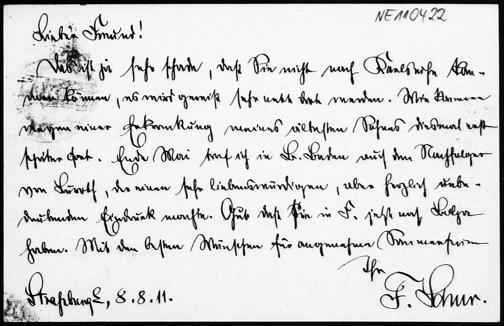 NE110422
Lieber Freund!
Das ist ja sehr schade, daß Sie nicht nach Karlsruhe kom-
men können, es wird gewiß sehr nett dort werden. Wir kommen
wegen einer Erkrankung meines ältesten Sohnes diesmal erst
später fort. Ende Mai traf ich in B. Baden auch den Nachfolger
von Lüroth, der einen sehr liebenswürdigen, aber herzlich unbe-
deutenden Eindruck machte. Gut daß Sie in F. jetzt noch
haben. Mit den besten Wünschen für angenehme Sommerferien
Ihr
Straßburg E, 8.8.11. F. Schur.